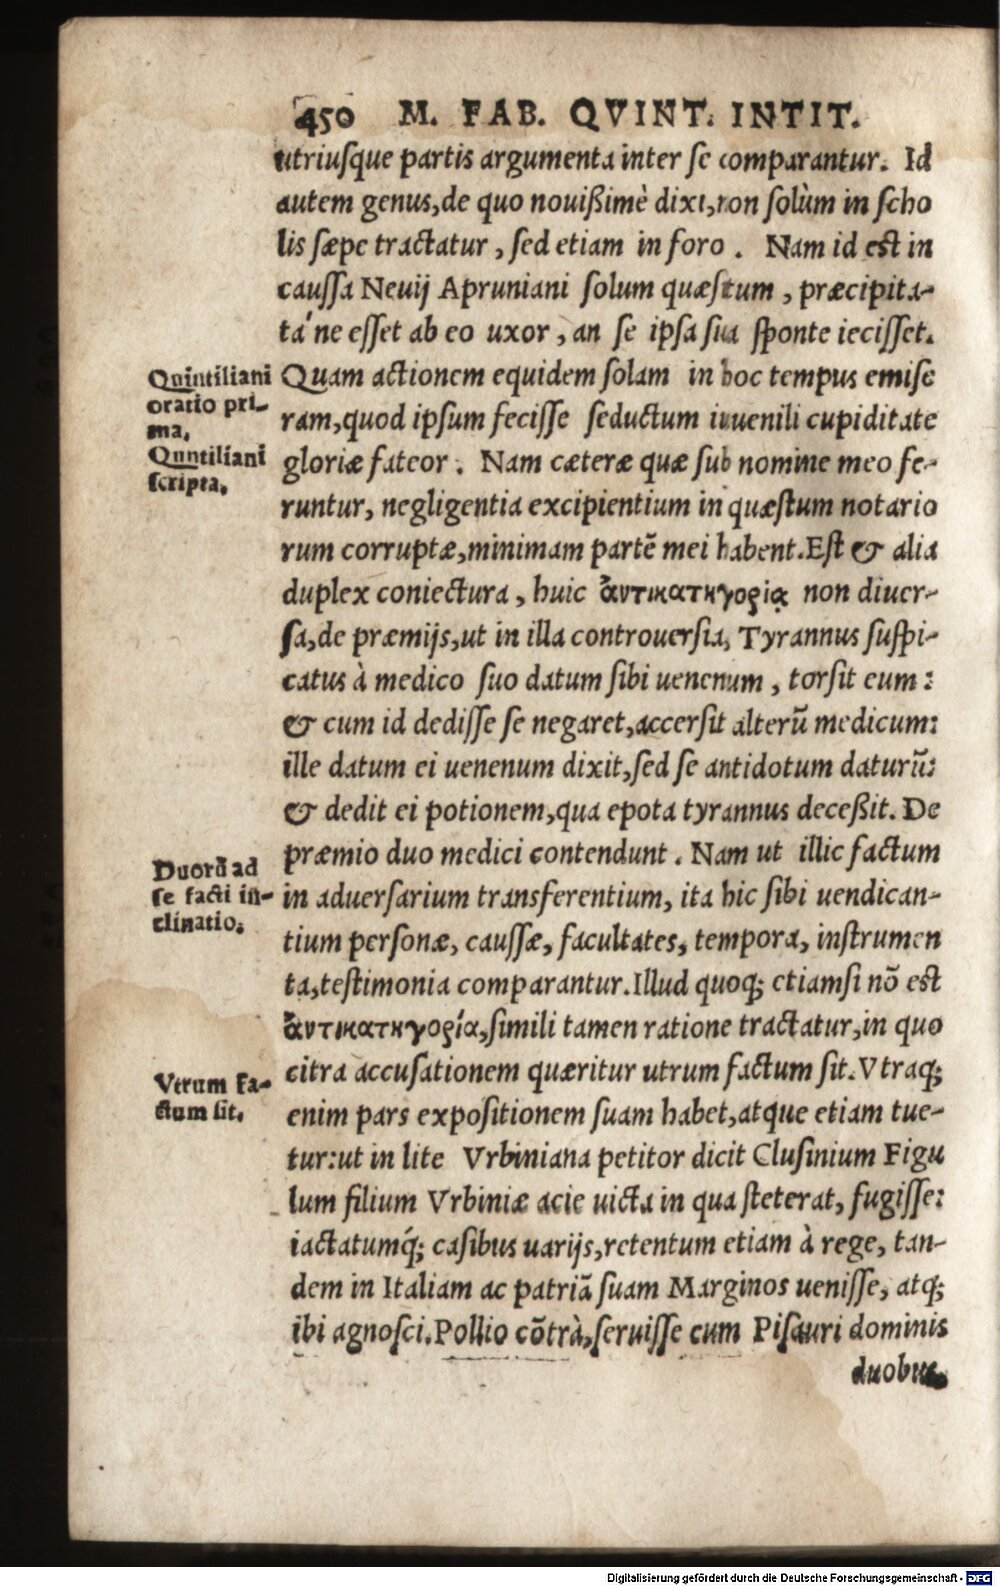 450 M. FAB. QVINT. INTIT.
utriusque partis argumenta inter se comparantur. Id
autem genus, de quo nouißimè dixi, non solùm in scho
lis sæpe tractatur, sed etiam in foro. Nam id est in
caussa Neuij Apruniani solum quæstum, præcipita-
tá ne esset ab eo uxor, an se ipsa sua sponte iecisset.
Quintiliani oratio pri-
ma.
Quntiliani
scripta.
Quam actionem equidem solam in hoc tempus emise
ram, quod ipsum fecisse seductum iuuenili cupiditate
gloriæ fateor. Nam cæteræ quæ sub nomine meo fe-
runtur, negligentia excipientium in quæstum notario
rum corruptæ, minimam partē mei habent. Est & alia
duplex coniectura, huic ἀντικατηγορίᾳ non diuer-
sa, de præmijs, ut in illa controuersia, Tyrannus suspi-
catus à medico suo datum sibi uenenum, torsit eum:
& cum id dedisse se negaret, accersit alterū medicum:
ille datum ei uenenum dixit, sed se antidotum daturū:
& dedit ei potionem, qua epota tyrannus deceßit. De
Duorū ad
se facti in-
clinatio.
præmio duo medici contendunt. Nam ut illic factum
in aduersarium transferentium, ita hic sibi uendican-
tium personæ, caussæ, facultates, tempora, instrumen
ta, testimonia comparantur. Illud quoq; etiamsi nō est
ἀντικατηγορία, simili tamen ratione tractatur, in quo
Vtrum fa-
ctum sit.
citra accusationem quæritur utrum factum sit. Vtraq;
enim pars expositionem suam habet, atque etiam tue-
tur: ut in lite Vrbiniana petitor dicit Clusinium Figu
lum filium Vrbiniæ acie uicta in qua steterat, fugisse:
iactatumq́; casibus uarijs, retentum etiam à rege, tan-
dem in Italiam ac patriā suam Marginos uenisse, atq;
ibi agnosci. Pollio cōtrà, seruisse eum Pisauri dominis
duobus
Digitalisierung gefördert durch die Deutsche Forschungsgemeinschaft - DFG